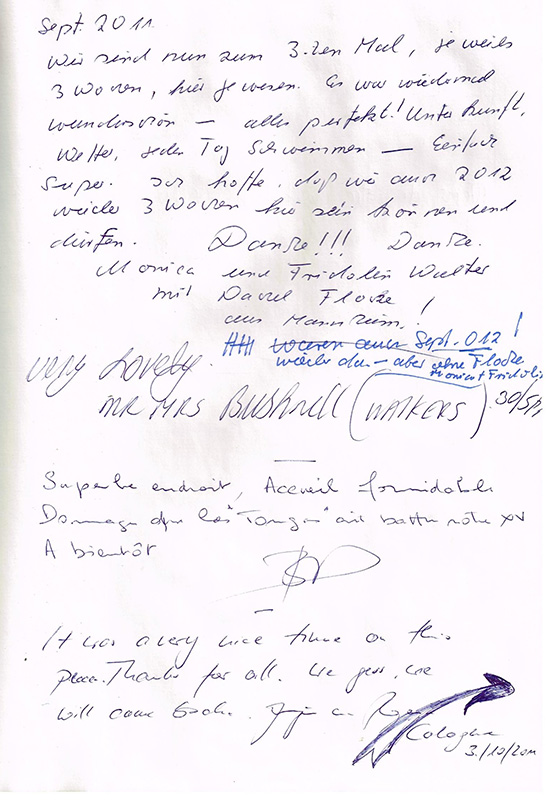 Sept. 2011.
Wir sind nun zum 3.ten Mal, jeweils
3 Wochen, hier gewesen. Es war wiederum
wunderschön — alles perfekt! Unterkunft,
Wetter, jeden Tag Schwimmen — Einfach
Super. Ich hoffe, daß wir auch 2012
wieder 3 Wochen hier sein können und
dürfen. Danke!!! Danke.
Monica und Fridolin Walter
mit Flocke
aus Mannheim!
waren auch Sept. 012!
wieder da — aber ohne Flocke
Monica + Fridolin
Very Lovely.
MR MRS Bushnell (WALKERS) 30/9/11
Superbe endroit, Accueil formidable
Dommage que les "Tongas" ait battu nôtre XV
A bientôt
It was a very nice time on this
place. Thanks for all. We guess, we
will come back.
Cologne
3./10/2011